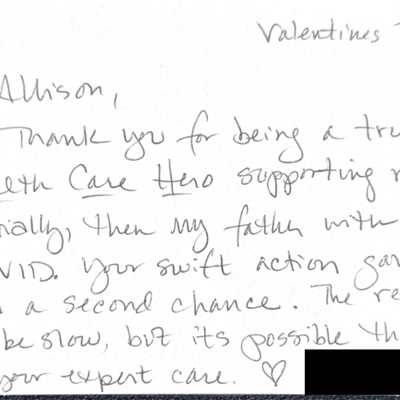 Valentines
Allison,
Thank you for being a tru
eth Care Hero supporting
ially, then my father with
VID. Your swift action gav
a second chance. The re
be slow, but its possible th
your expert care. ♡